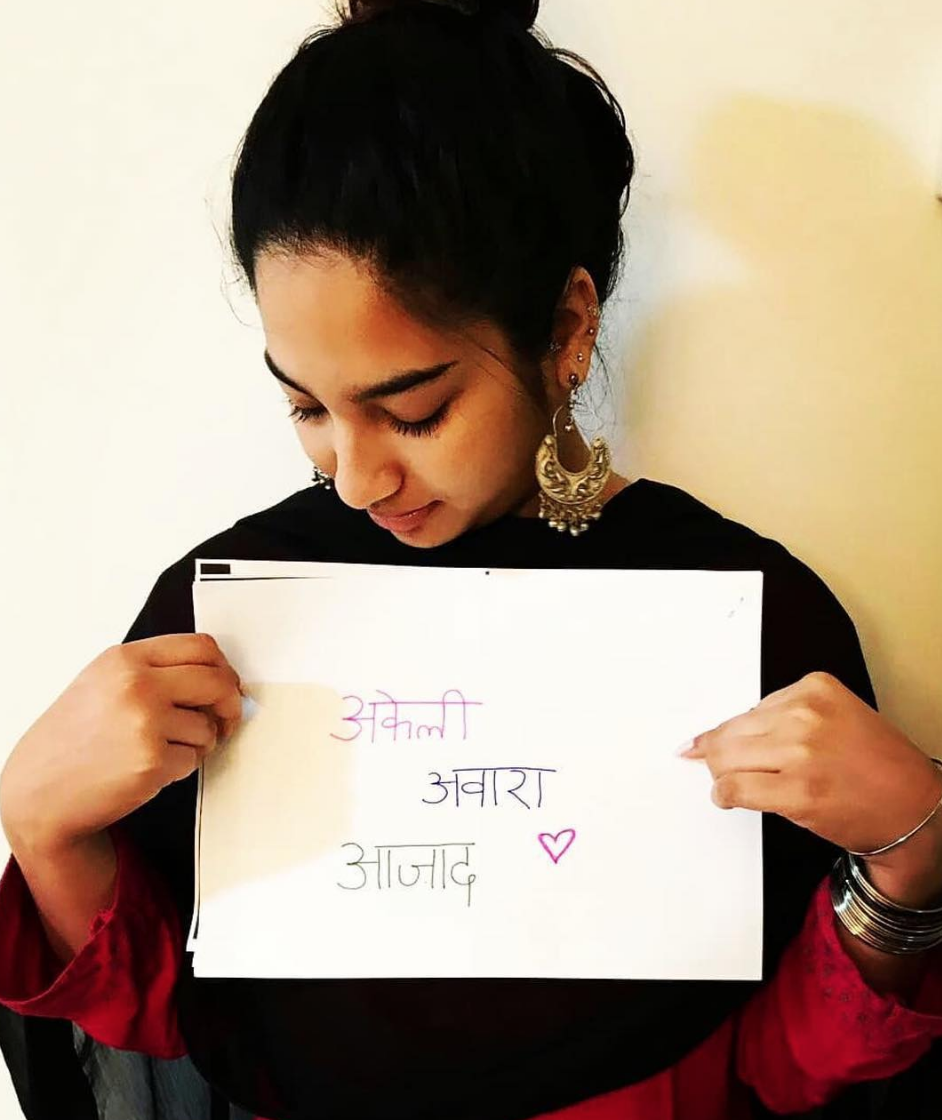 अकेली
अवारा
आजाद